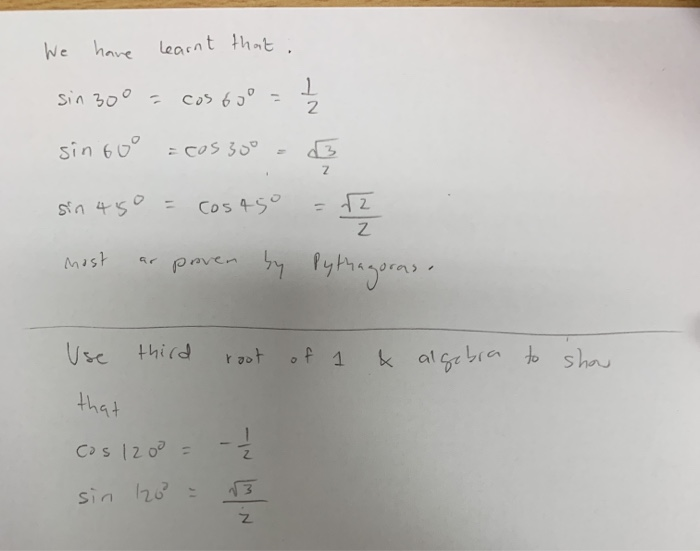 We have learnt that.
sin 30° = cos 60° = 1/2
sin 60° = cos 30° = √3/2
sin 45° = cos 45° = √2/2
Most ar proven by Pythagoras.
Use third root of 1 & algebra to show
that
cos 120° = -1/2
sin 120° = √3/2